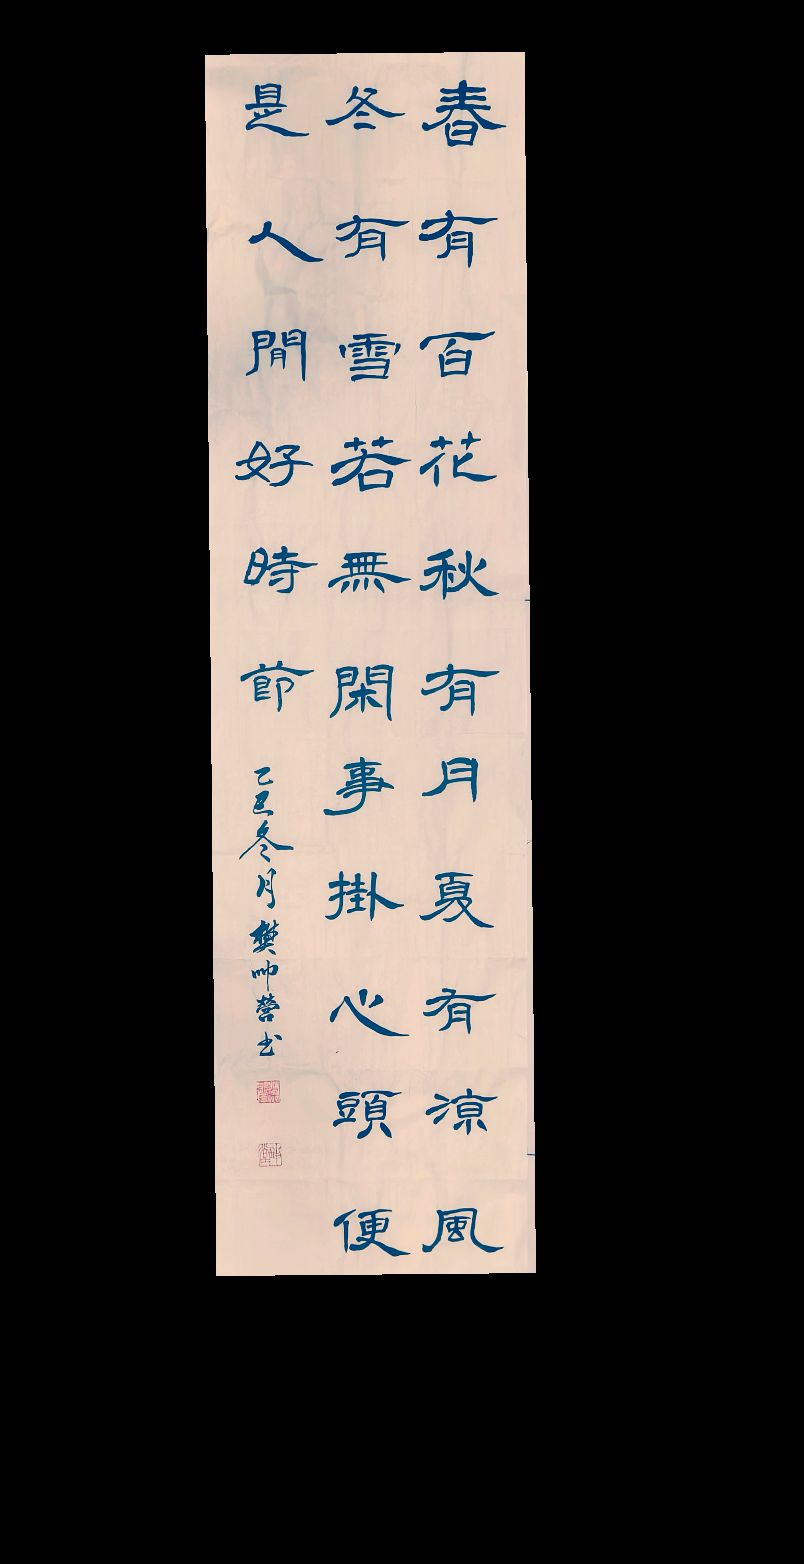 春有百花秋有月夏有涼風
冬有雪若無閑事掛心頭便
是人閒好時節
己丑冬月樊帅營书